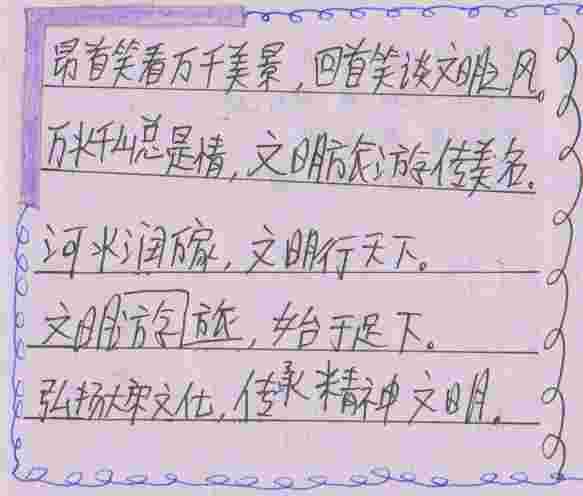 昂首笑看万千美景,回首笑谈文明之风。
万水千山总是情,文明旅游传美名。
河水润万家,文明行天下。
文明游旅,始于足下。
弘扬文化,传承精神文明。